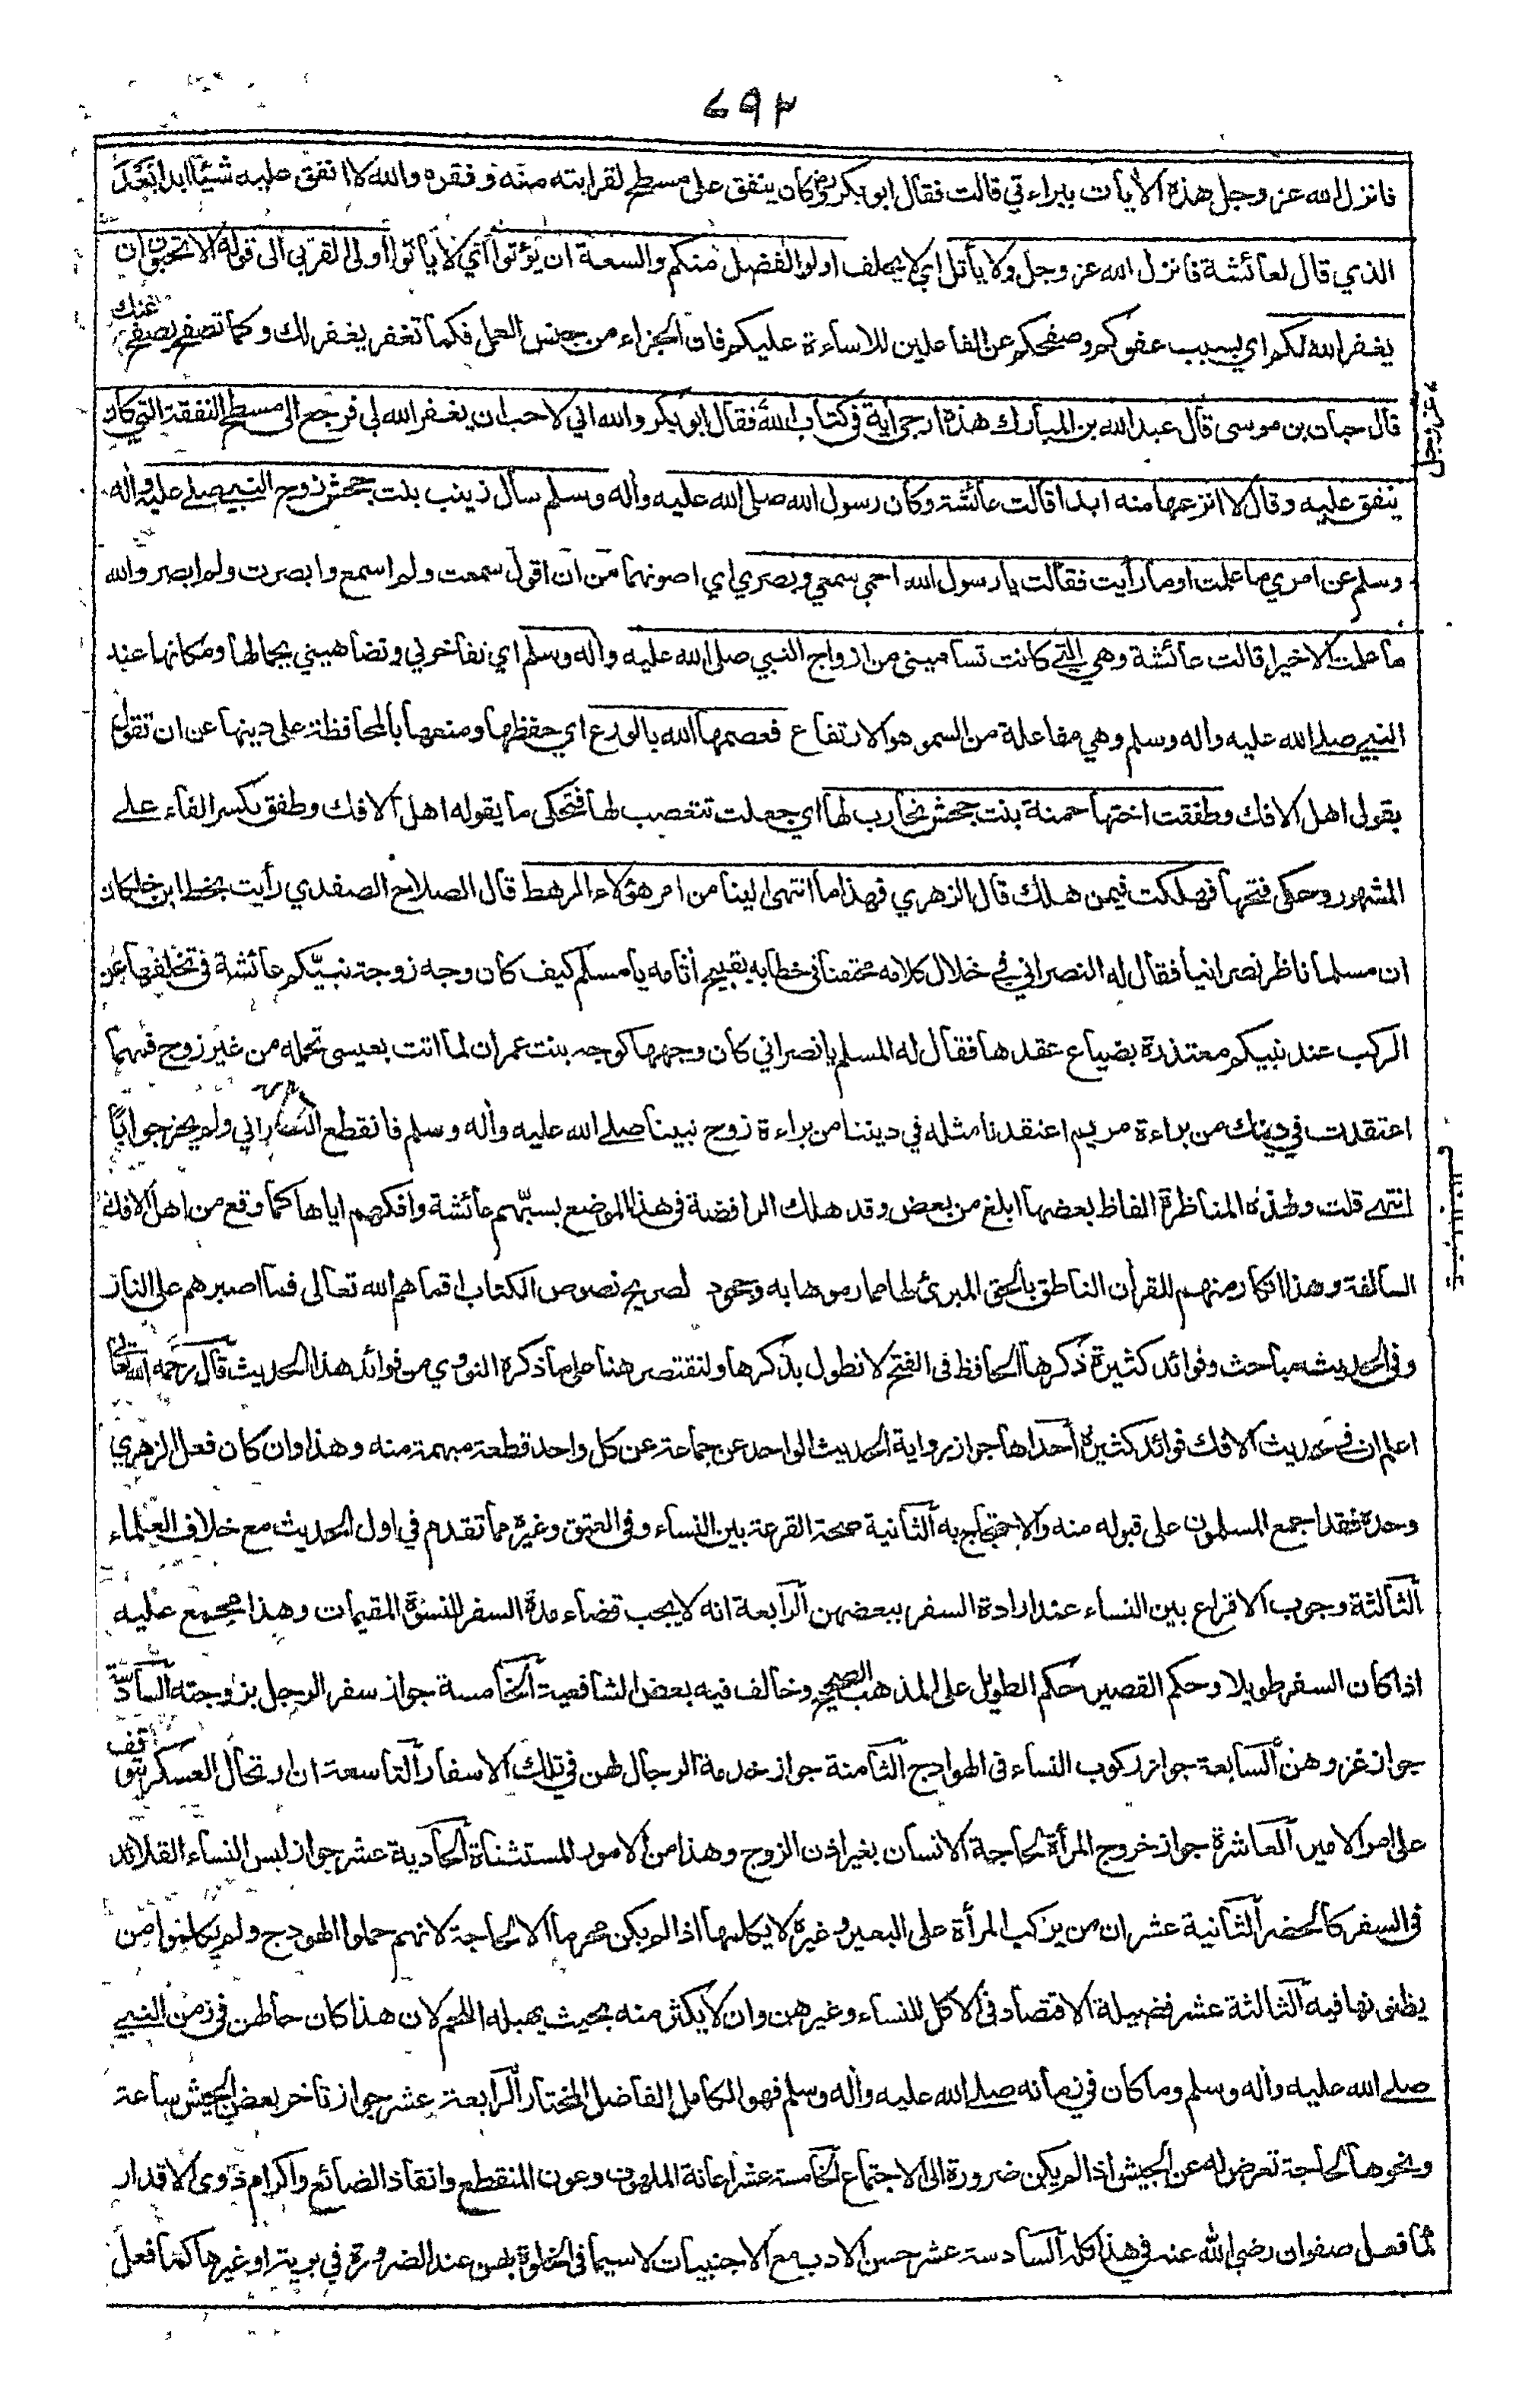 ٦٩٣
فانزل الله عز وجل هذه الأيات ببراءتي قالت فقال ابو بكر رض وكان ينفق على مسطح لقرابته منه وفقره والله لا انفق عليه شيئا ابدا بعد
الذي قال لعائشة فانزل الله عز وجل ولا يأتل اي لا يحلف اولو الفضل منكم والسعة ان يؤتوا أي لا يأتوا أولى القربى الى قوله الا تحبون ان
يغفر الله لكم اي بسبب عفوكم وصفحكم عن الفاعلين للاساءة عليكم فان الجزاء من جنس العمل فكما تغفر يغفر لك وكما تصفح يصفح عنك
قال حبان بن موسى قال عبد الله بن المبارك هذه ارجى أية في كتاب الله فقال ابو بكر والله اني لاحب ان يغفر الله لي فرجع الى مسطح النفقة التي كان
عز وجل
ينفق عليه وقال لا انزعها منه ابدا قالت عائشة وكان رسول الله صلى الله عليه وأله وسلم سأل زينب بنت جحش زوج النبي صلى عليه وأله
وسلم عن امري ما علمت او ما رأيت فقالت يا رسول الله احمي سمعي وبصري اي اصونهما من ان اقول سمعت ولم اسمع وابصرت ولم ابصر والله
ما علمت الا خيرا قالت عائشة وهي التي كانت تساميني من ازواج النبي صلى الله عليه وأله وسلم اي تفاخرني وتضاهيني بجمالها ومكانها عند
النبي صلى الله عليه واله وسلم وهي مفاعلة من السمو هو الارتفاع فعصمها الله بالورع اي حفظها ومنعها بالمحافظة على دينها عن ان تقول
بقول اهل الافك وطفقت اختها حمنة بنت جحش تحارب لها اي جعلت تتعصب لها فتحكي ما يقوله اهل الافك وطفق بكسر الفاء على
المشهور وحكى فتحها فهلكت فيمن هلك قال الزهري فهذا ما انتهى الينا من امر هؤلاء الرهط قال الصلاح الصفدي رأيت بخط ابن خلكان
ان مسلما ناظر نصرانيا فقال له النصراني في خلال كلامه محتقنا في خطابه بقبيح أثامه يا مسلم كيف كان وجه زوجة نبيكم عائشة في تخلفها عن
الركب عند نبيكم معتذرة بضياع عقدها فقال له المسلم يا نصراني كان وجهها كوجه بنت عمران لما اتت بعيسى تحمله من غير زوج فمهما
اعتقدت في دينك من براءة مريم اعتقدنا مثله في ديننا من براءة زوج نبينا صلى الله عليه وأله وسلم فانقطع النصراني ولم يحر جوابا
انتهى قلت ولهذه المناظرة الفاظ بعضها ابلغ من بعض وقد هلك الرافضة في هذا الموضع بسبهم عائشة وافكهم اياها كما وقع من اهل الافك
السالفة وهذا انكار منهم للقرأن الناطق بالحق المبرئ لها مما رموها به وجحود لصريح نصوص الكتاب اقماهم الله تعالى فما اصبرهم على النار
وفي الحديث مباحث وفوائد كثيرة ذكرها الحافظ في الفتح لا نطول بذكرها ولنقتصر هنا على ما ذكره النووي من فوائد هذا الحديث قال رحمه الله تعالى
اعلم ان في حديث الافك فوائد كثيرة أحداها جواز رواية الحديث الواحد عن جماعة عن كل واحد قطعة مبهمة منه وهذا وان كان فعل الزهري
وحده فقد اجمع المسلمون على قبوله منه والاحتجاج به الثانية صحة القرعة بين النساء وفي العتق وغيره مما تقدم في اول الحديث مع خلاف العلماء
الثالثة وجوب الاقراع بين النساء عند ارادة السفر ببعضهن الرابعة انه لا يجب قضاء مدة السفر للنسوة المقيمات وهذا مجمع عليه
اذا كان السفر طويلا وحكم القصير حكم الطويل على المذهب الصحيح وخالف فيه بعض الشافعية الخامسة جواز سفر الرجل بزوجته السادسة
جواز غزوهن السابعة جواز ركوب النساء في الهوادج الثامنة جواز خدمة الرجال لهن في تلك الاسفار التاسعة ان ارتحال العسكر يتوقف
على امر الامير العاشرة جواز خروج المرأة لحاجة الانسان بغير اذن الزوج وهذا من الامور المستثناة الحادية عشر جواز لبس النساء القلائد
في السفر كالحضر الثانية عشر ان من يركب المرأة على البعير وغيره لا يكلمها اذا لم يكن محرما الا لحاجة لانهم حملوا الهودج ولم يكلموا من
يظنونها فيه الثالثة عشر فضيلة الاقتصاد في الاكل للنساء وغيرهن وان لا يكثر منه بحيث يهبله اللحم لان هذا كان حالهن في زمن النبي
صلى الله عليه وأله وسلم وما كان في زمانه صلى الله عليه وأله وسلم فهو الكامل الفاضل المختار الرابعة عشر جواز تاخر بعض الجيش ساعة
ونحوها لحاجة تعرض له عن الجيش اذا لم يكن ضرورة الى الاجتماع الخامسة عشر اعانة الملهوف وعون المنقطع وانقاذ الضائع واكرام ذوي الاقدار
كما فعل صفوان رضي الله عنه في هذا كله السادسة عشر حسن الادب مع الاجنبيات لا سيما في الخلوة بهن عند الضرورة في برية او غيرها كما فعل